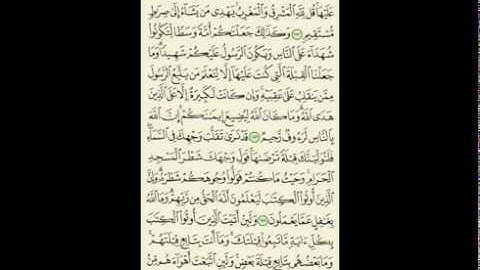 عَلَيْهَا ۚ قُل لِّلَّهِ ٱلْمَشْرِقُ وَٱلْمَغْرِبُ ۚ يَهْدِى مَن يَشَآءُ إِلَىٰ صِرَٰطٍ
مُّسْتَقِيمٍ ١٤٢ وَكَذَٰلِكَ جَعَلْنَٰكُمْ أُمَّةً وَسَطًا لِّتَكُونُوا۟
شُهَدَآءَ عَلَى ٱلنَّاسِ وَيَكُونَ ٱلرَّسُولُ عَلَيْكُمْ شَهِيدًا ۗ وَمَا
جَعَلْنَا ٱلْقِبْلَةَ ٱلَّتِى كُنتَ عَلَيْهَآ إِلَّا لِنَعْلَمَ مَن يَتَّبِعُ ٱلرَّسُولَ
مِمَّن يَنقَلِبُ عَلَىٰ عَقِبَيْهِ ۚ وَإِن كَانَتْ لَكَبِيرَةً إِلَّا عَلَى ٱلَّذِينَ
هَدَى ٱللَّهُ ۗ وَمَا كَانَ ٱللَّهُ لِيُضِيعَ إِيمَٰنَكُمْ ۚ إِنَّ ٱللَّهَ
بِٱلنَّاسِ لَرَءُوفٌ رَّحِيمٌ ١٤٣ قَدْ نَرَىٰ تَقَلُّبَ وَجْهِكَ فِى ٱلسَّمَآءِ ۖ
فَلَنُوَلِّيَنَّكَ قِبْلَةً تَرْضَىٰهَا ۚ فَوَلِّ وَجْهَكَ شَطْرَ ٱلْمَسْجِدِ
ٱلْحَرَامِ ۚ وَحَيْثُ مَا كُنتُمْ فَوَلُّوا۟ وُجُوهَكُمْ شَطْرَهُۥ ۗ وَإِنَّ
ٱلَّذِينَ أُوتُوا۟ ٱلْكِتَٰبَ لَيَعْلَمُونَ أَنَّهُ ٱلْحَقُّ مِن رَّبِّهِمْ ۗ وَمَا ٱللَّهُ
بِغَٰفِلٍ عَمَّا يَعْمَلُونَ ١٤٤ وَلَئِنْ أَتَيْتَ ٱلَّذِينَ أُوتُوا۟ ٱلْكِتَٰبَ
بِكُلِّ ءَايَةٍ مَّا تَبِعُوا۟ قِبْلَتَكَ ۚ وَمَآ أَنتَ بِتَابِعٍ قِبْلَتَهُمْ ۚ
وَمَا بَعْضُهُم بِتَابِعٍ قِبْلَةَ بَعْضٍ ۚ وَلَئِنِ ٱتَّبَعْتَ أَهْوَآءَهُم مِّنۢ